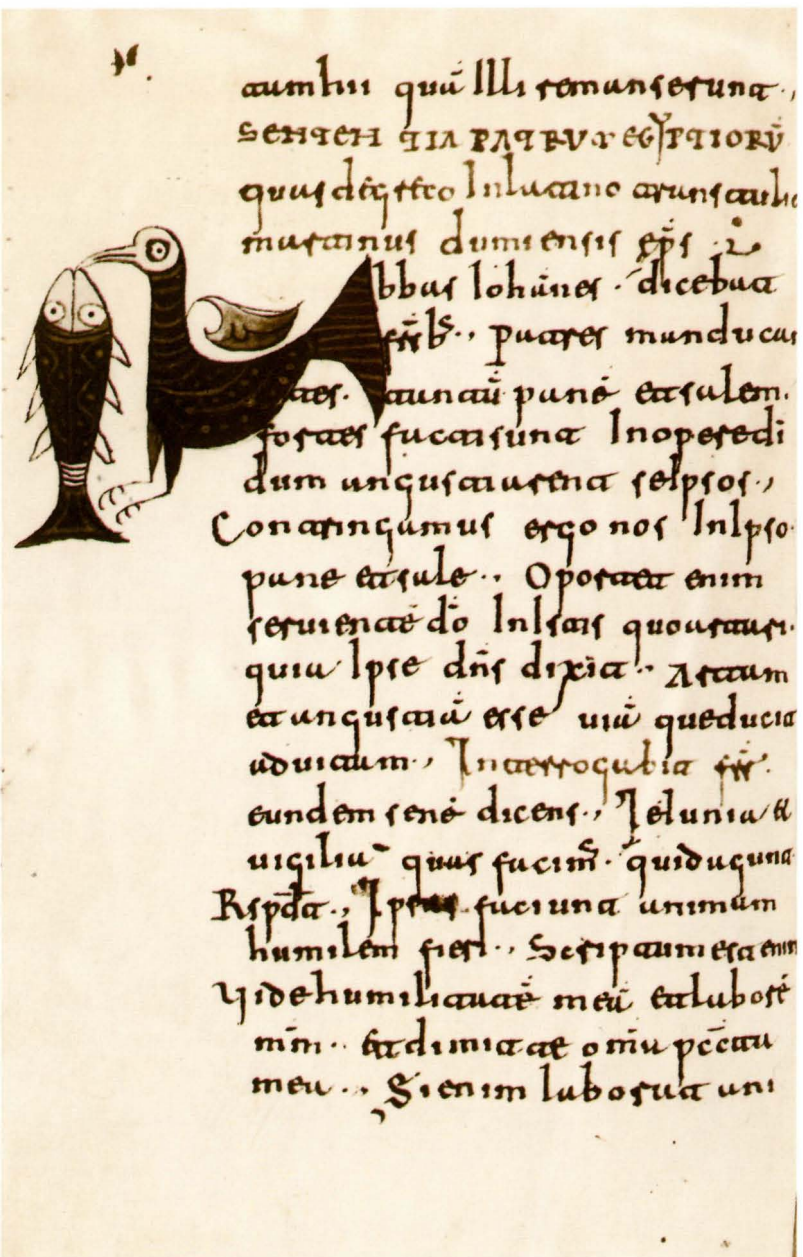 tam hii quā Illi remanserunt ·,
SENTENTIA PATRUM EGYPTIORŪ
quas de greco In latino transtuli
martinus dumiensis ep̄s
Abbas Iohānes · dicebat
fr̄b; ·, Patres manducan
tes. tantū panē et salem.
fortes facti sunt In opere dī
dum angustiarent seIpsos ·,
Constringamus ergo nos In Ipso
pane et sale ·, Oportet enim
seruientē dō In Istis quoartari.
quia Ipse dn̄s dixit ·, Artam
et angustiā esse uiā que ducit
ad uitam ·, Interrogabit fr̄r.
eundem senē dicens ·, Ieiunia et
uigilia quas facim̄s · quid agunt
Rspd̄t ·, faciunt animam
humilem fieri ·, Scriptum est enim
Uide humilitatē meā et laborē
mm̄ ·, Et dimitte om̄a pcc̄ta
mea ·, Si enim laborat ani